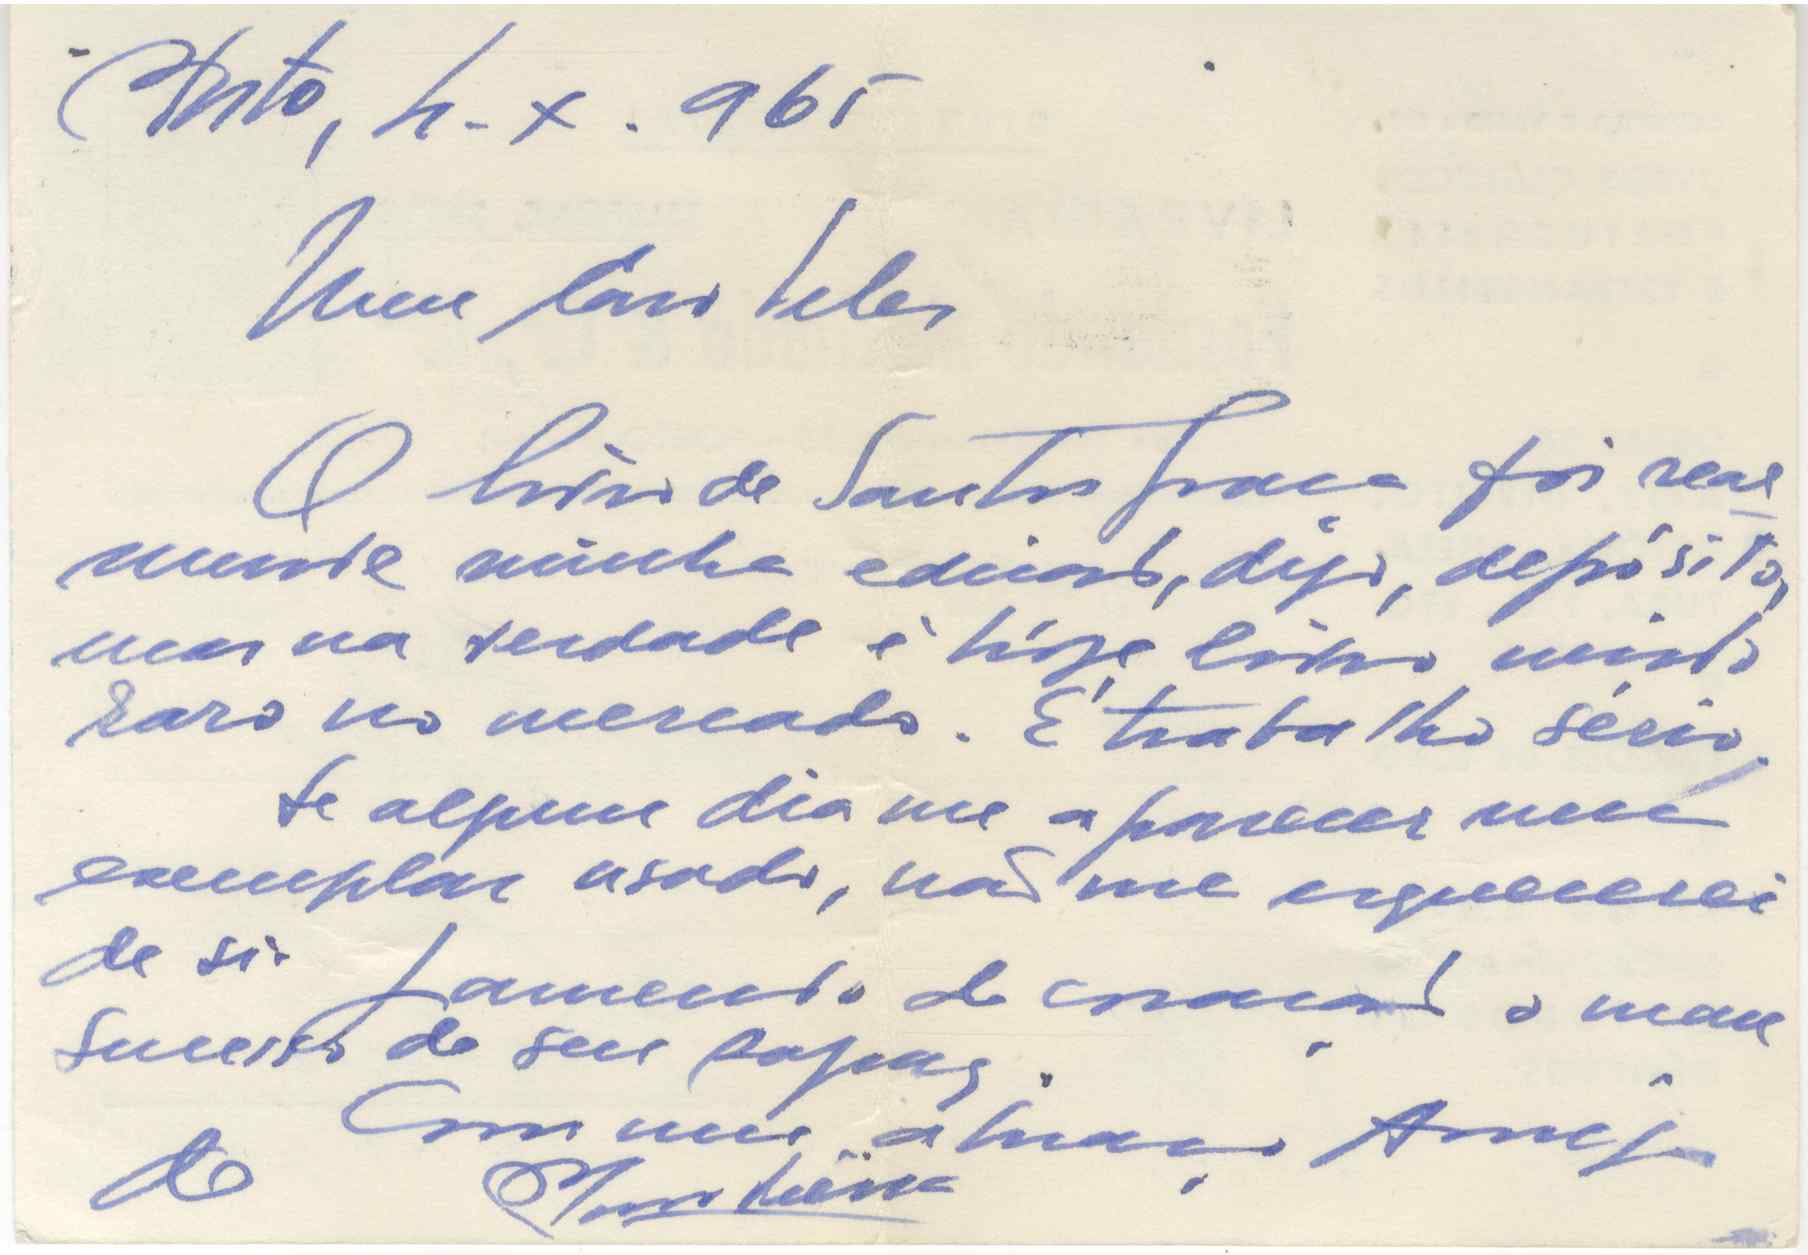 Porto, 4-X. 965
Meu Caro Teles
O livro de Santos Graça foi real
mente minha edição, digo, depósito,
mas na verdade é hoje livro muito
raro no mercado. É trabalho sério.
Se algum dia me aparecer um
exemplar usado, não me esquecerei
de si. Lamento de coração o mau
sucesso do seu rapaz.
Com um abraço Amigo
do